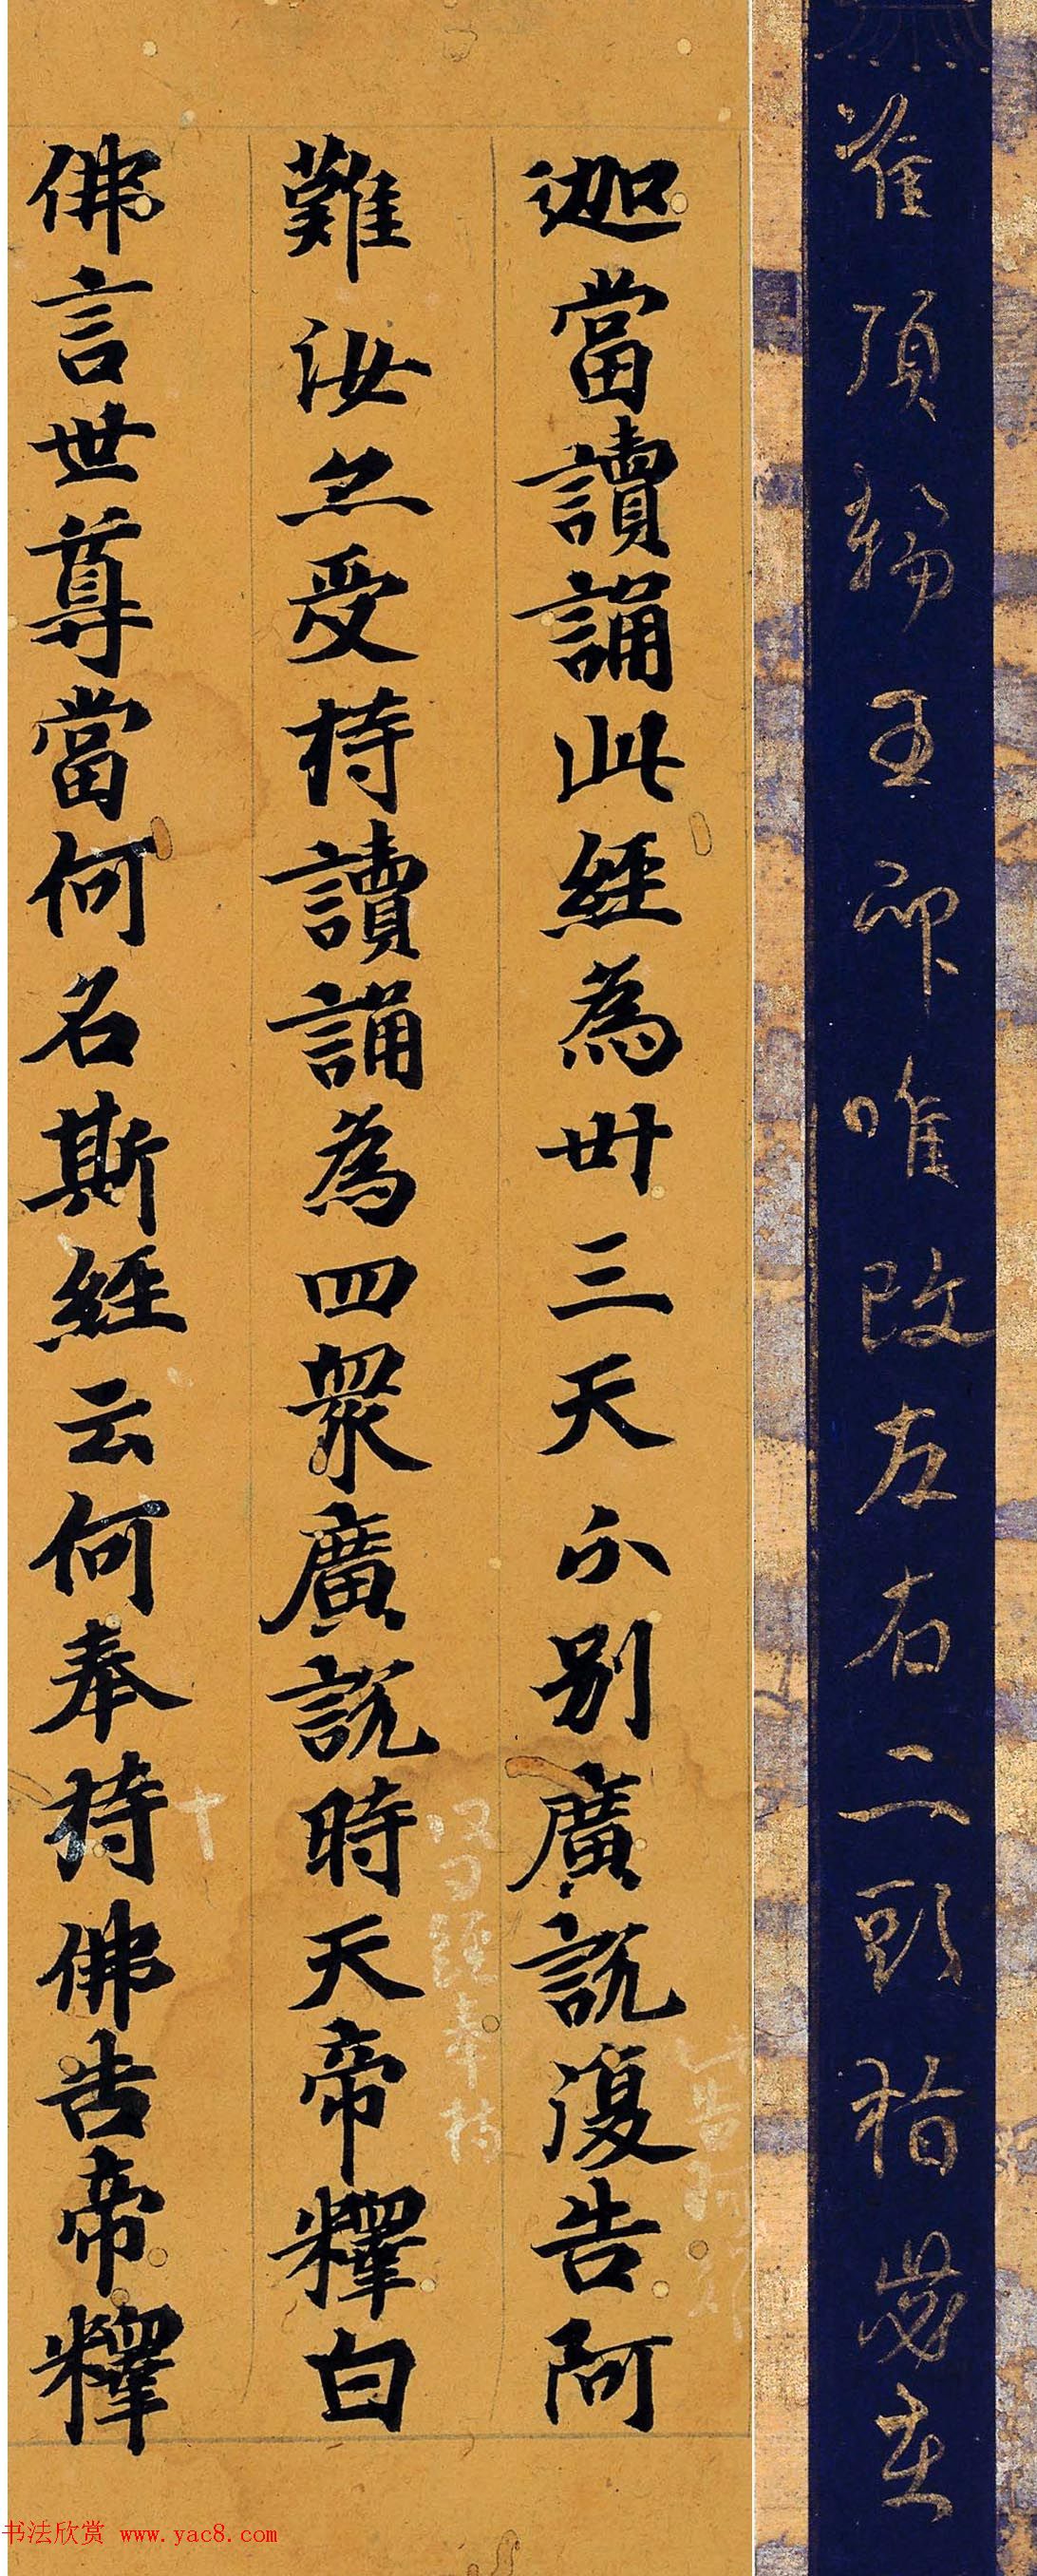 准頂輪王印唯改左右二頭指
迦當讀誦此經為卅三天分別廣說復告阿
難汝亦受持讀誦為四衆廣說時天帝釋白
佛言世尊當何名斯經云何奉持佛告帝釋
十
书法欣赏 www.yac8.com